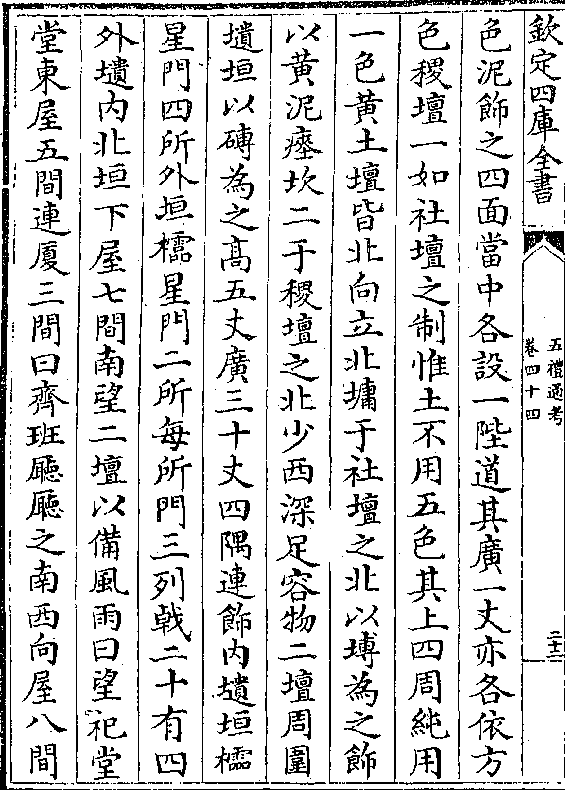 欽定四庫全書
五禮通考
卷四十四
二十二
色泥飾之四面當中各設一陛道其廣一丈亦各依方
色稷壇一如社壇之制惟土不用五色其上四周純用
一色黃土壇皆北向立北墉于社壇之北以塼為之飾
以黃泥瘞坎二于稷壇之北少西深足容物二壇周圍
壝垣以磚為之高五丈廣三十丈四隅連飾内壝垣櫺
星門四所外垣櫺星門二所每所門三列戟二十有四
外壝内北垣下屋七間南望二壇以備風雨曰望祀堂
堂東屋五間連厦三間曰齊班廳廳之南西向屋八間